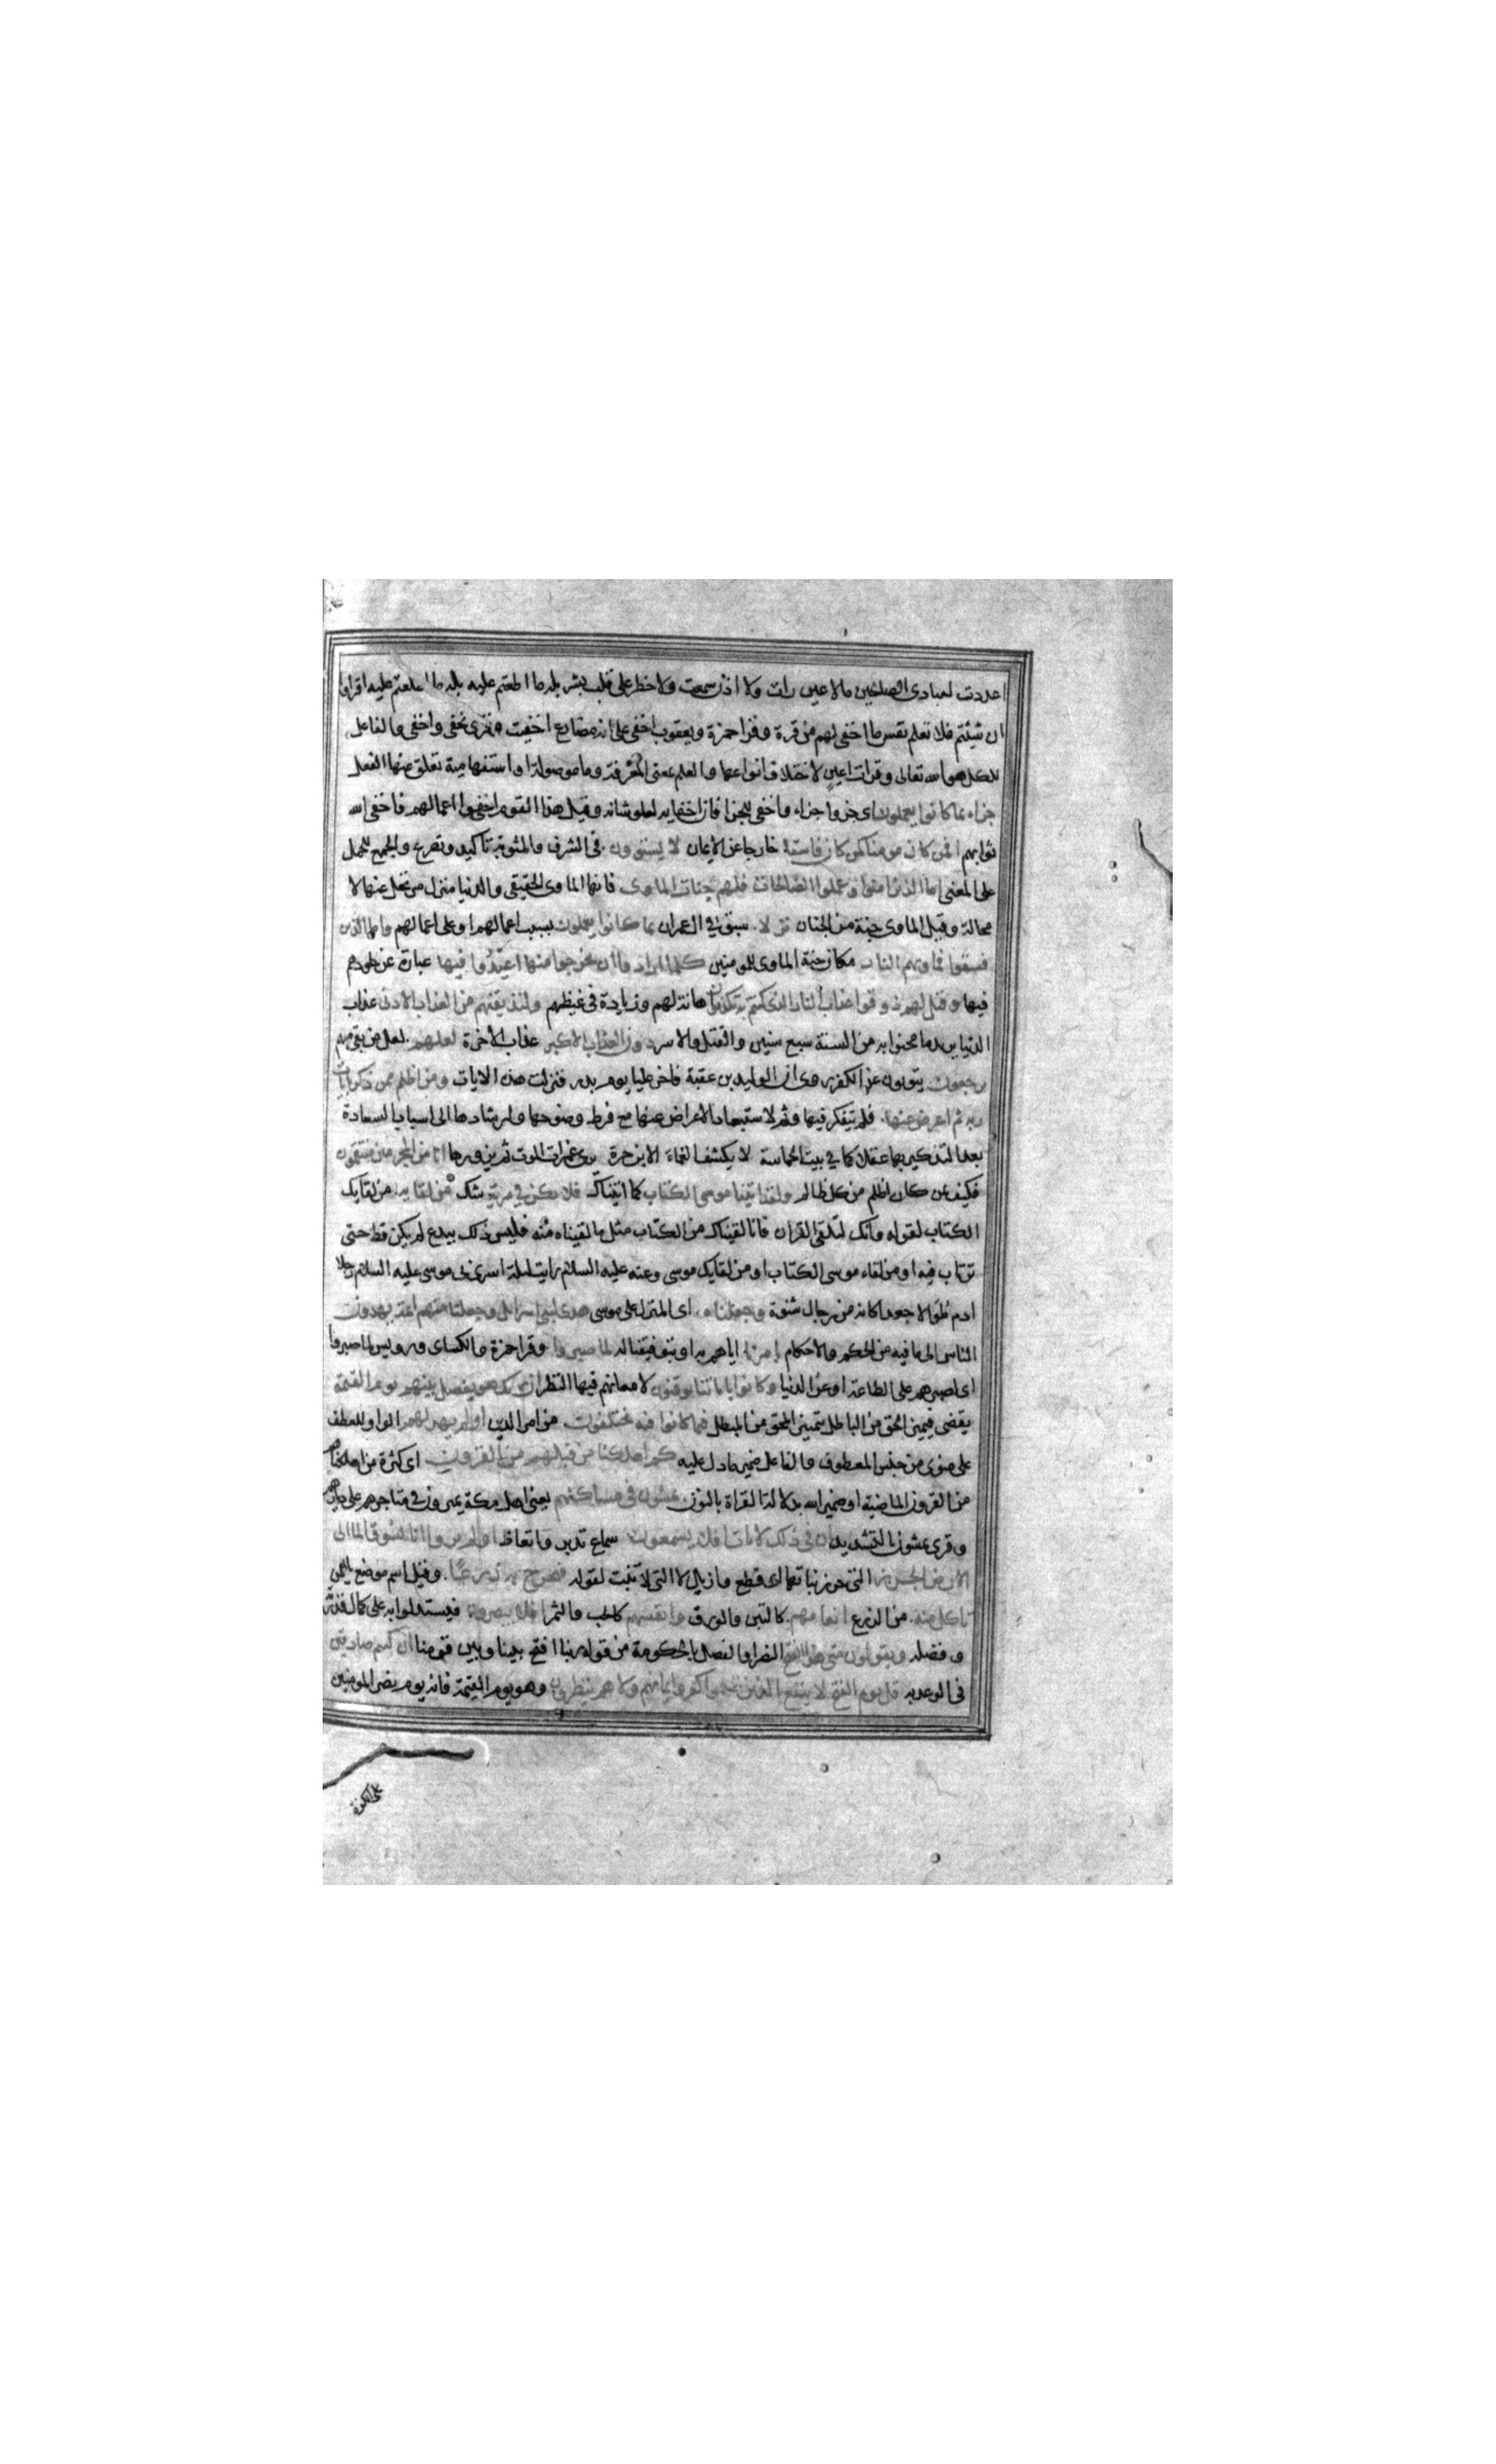 اعددت لعبادى الصالحين مالا عين رات ولا اذن سمعت ولا خطر على قلب بشر بله ما اطلعتم عليه بله ما اطلعتم عليه اقراوا
ان شيئتم فلا تعلم نفس ما اخفى لهم من قرة وقرا حمزة ويعقوب اخفى على انه مضارع اخفيت وقرى نخفى واخفى والفاعل
للكل هو الله تعالى وقرات اعين لاختلاف انواعها والعلم بمعنى المعرفة وما موصولة او استفهامية تعلق عنها الفعل
جزاء بما كانوا يعملون اى جزوا جزاء واخفى للجزا فان اخفايه لعلو شانه وقيل هذا القوم اخفوا اعمالهم فاخفى الله
ثوابهم افمن كان مومنا كمن كان فاسقا خارجا عن الايمان لا يستوون فى الشرف والمثوبة تاكيد وتصريح والجمع للحمل
على المعنى اما الذين امنوا وعملوا الصالحات فلهم جنات الماوى فانها الماوى الحقيقى والدنيا منزل مرتحل عنها لا
محالة وقيل الماوى جنة من الجنان نزلا سبق فى ال عمران بما كانوا يعملون بسبب اعمالهم او على اعمالهم واما الذين
فسقوا فماويهم النار مكان جنة الماوى للمومنين كلما ارادوا ان يخرجوا منها اعيدوا فيها عبارة عن خلودهم
فيها وقيل لهم ذوقوا عذاب النار الذى كنتم به تكذبون اهانة لهم وزيادة فى غيظهم ولنذيقنهم من العذاب الادنى عذاب
الدنيا يريد ما محنوا به من السنة سبع سنين والقتل والاسر دون العذاب الاكبر عذاب الاخرة لعلهم لعل من بقى منهم
يرجعون يتوبون عن الكفر روى ان الوليد بن عقبة فاخر عليا يوم بدر فنزلت هذه الايات ومن اظلم ممن ذكر بايات
ربه ثم اعرض عنها فلم يتفكر فيها وثم لاستبعاد الاعراض عنها مع فرط وضوحها وارشادها الى اسباب السعادة
بعد التذكير بها عقلا كما فى بيت الحماسة لا يكشف الغماء الا ابن حرة يرى غمرات الموت ثم يزورها انا من المجرمين منتقمون
فكيف بمن كان اظلم من كل ظالم ولقد اتينا موسى الكتاب كما اتيناك فلا تكن فى مرية شك من لقايه من لقايك
الكتاب لقوله وانك لتلقى القران فانا لقيناك من الكتاب مثل ما لقيناه منه فليس ذلك ببدع لم يكن قط حتى
ترتاب فيه او من لقاء موسى الكتاب او من لقايك موسى وعنه عليه السلام رايت ليلة اسرى بى موسى عليه السلام رجلا
ادم طوالا جعدا كانه من رجال شنوة وجعلناه اى المنزل على موسى هدى لبنى اسرايل وجعلنا منهم ايمة يهدون
الناس الى ما فيه من الحكم والاحكام بامرنا اياهم به او بتوفيقنا له لما صبروا وقرا حمزة والكساى ورويس لما صبروا
اى لصبرهم على الطاعة او عن الدنيا وكانوا باياتنا يوقنون لامعانهم فيها النظر ان ربك هو يفصل بينهم يوم القيمة
يقضى فيميز الحق من الباطل بتمييز المحق من المبطل فيما كانوا فيه يختلفون من امر الدين اولم يهد لهم الواو للعطف
على منوى من جنس المعطوف والفاعل ضمير ما دل عليه كم اهلكنا من قبلهم من القرون اى كثرة من اهلكناهم
من القرون الماضية او ضمير الله بدلالة القراة بالنون يمشون فى مساكنهم يعنى اهل مكة يمرون فى متاجرهم على ديارهم
وقرى يمشون بالتشديد ان فى ذلك لايات افلا يسمعون سماع تدبر واتعاظ اولم يروا انا نسوق الما الى
الارض الجرز التى جرز نباتها اى قطع وازيل لا التى لا تنبت لقوله فنخرج به زرعا وقيل اسم موضع باليمن
تاكل منه من الزرع انعامهم كالتبن والورق وانفسهم كالحب والثمر افلا يبصرون فيستدلوا به على كمال قدرته
وفضله ويقولون متى هذا الفتح النصر او الفصل بالحكومة من قوله ربنا افتح بيننا وبين قومنا ان كنتم صادقين
فى الوعد به قل يوم الفتح لا ينفع الذين كفروا ايمانهم ولا هم ينظرون وهو يوم القيمة فانه يوم نصر المومنين
على الكفرة